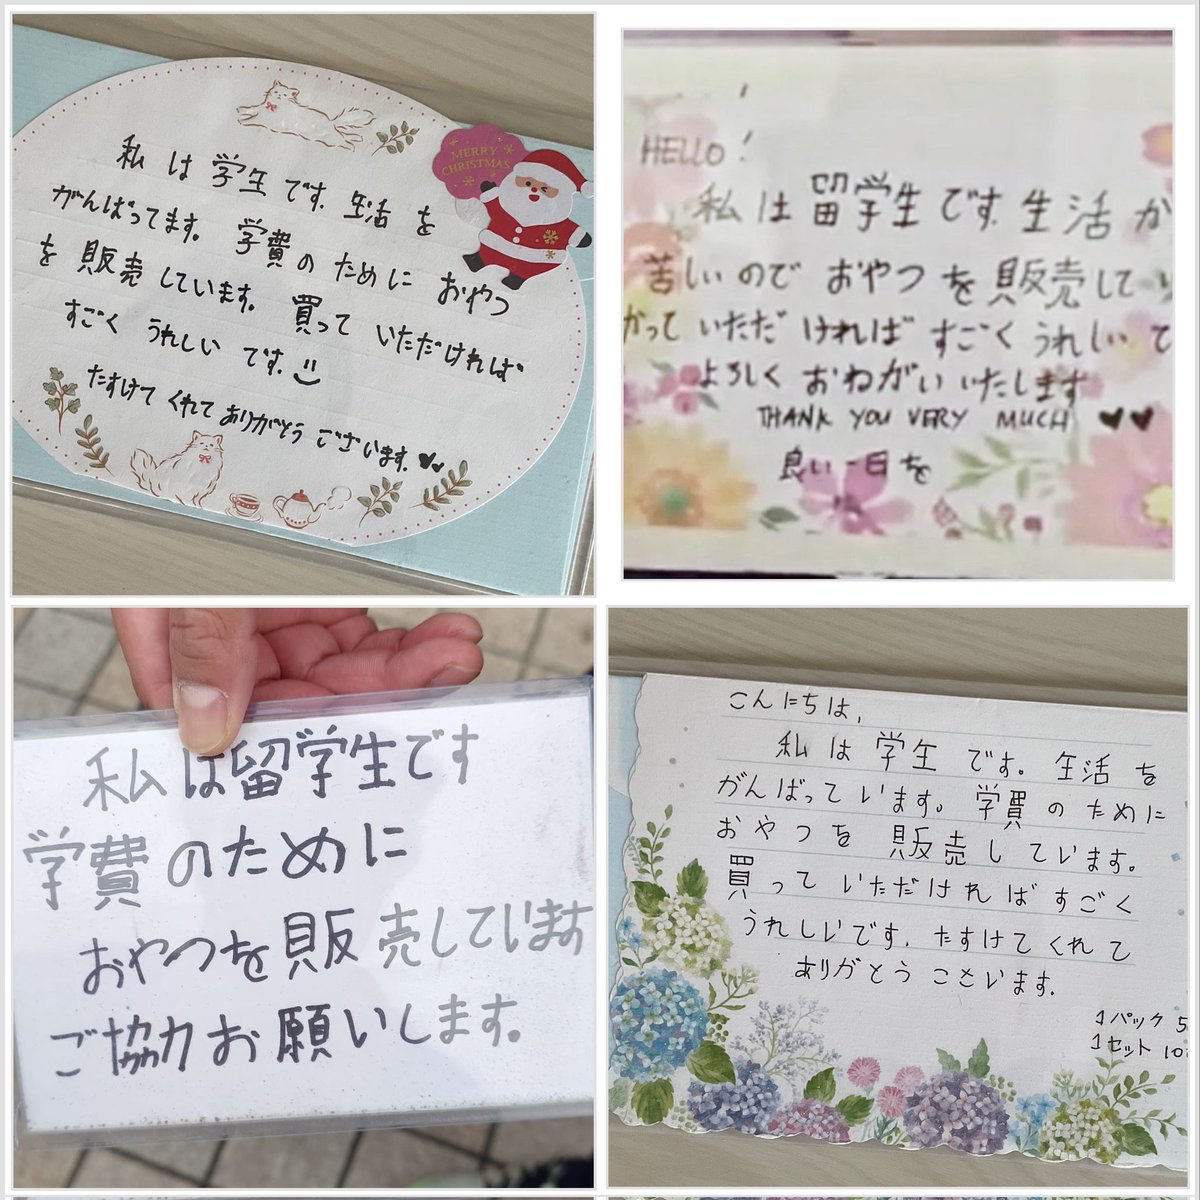 MERRY
CHRISTMAS
私は学生です。生活を
がんばってます。学費のためにおやつ
を販売しています。買っていただければ
すごくうれしいです。
たすけてくれてありがとうございます。
HELLO!
私は留学生です。生活か
苦しいのでおやつを販売してい
かっていただければすごくうれしいで
よろしくおねがいいたします
THANK YOU VERY MUCH
良い一日を
私は留学生です
学費のために
おやつを販売しています
ご協力お願いします。
こんにちは、
私は学生です。生活を
がんばっています。学費のために
おやつを販売しています。
買っていただければすごく
うれしいです。たすけてくれて
ありがとうごさいます。
1パック
1セット